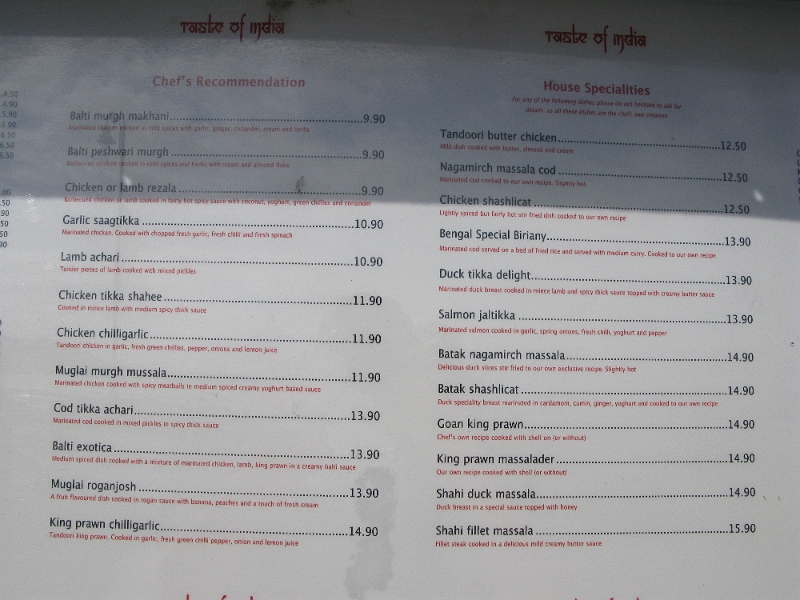 Taste of India
Chef's Recommendation
Balti murgh makhani 9.90
Marinated chicken cooked in mild spices with garlic, ginger, coriander, cream and herbs
Balti peshwari murgh 9.90
Marinated chicken cooked in mild spices and herbs with cream and almond flake
Chicken or lamb rezala 9.90
Barbecued chicken or lamb cooked in fairly hot spicy sauce with coconut, yoghurt, green chillies and coriander
Garlic saagtikka 10.90
Marinated chicken. Cooked with chopped fresh garlic, fresh chilli and fresh spinach
Lamb achari 10.90
Tender pieces of lamb cooked with mixed pickles
Chicken tikka shahee 11.90
Cooked in mince lamb with medium spicy thick sauce
Chicken chilligarlic 11.90
Tandoori chicken in garlic, fresh green chillies, pepper, onions and lemon juice
Muglai murgh mussala 11.90
Marinated chicken cooked with spicy meatballs in medium spiced creamy yoghurt based sauce
Cod tikka achari 13.90
Marinated cod cooked in mixed pickles in spicy thick sauce
Balti exotica 13.90
Medium spiced dish cooked with a mixture of marinated chicken, lamb, king prawn in a creamy balti sauce
Muglai roganjosh 13.90
A fruit flavoured dish cooked in rogan sauce with banana, peaches and a touch of fresh cream
King prawn chilligarlic 14.90
Tandoori king prawn. Cooked in garlic, fresh green chilli pepper, onion and lemon juice
Taste of India
House Specialities
For any of the following dishes please do not hesitate to ask for
details, as all these dishes are the chefs own creation
Tandoori butter chicken 12.50
Mild dish cooked with butter, almond and cream
Nagamirch massala cod 12.50
Marinated cod cooked to our own recipe. Slightly hot
Chicken shashlicat 12.50
Lightly spiced but fairly hot stir fried dish cooked to our own recipe
Bengal Special Biriany 13.90
Marinated cod served on a bed of fried rice and served with medium curry. Cooked to our own recipe
Duck tikka delight 13.90
Marinated duck breast cooked in mince lamb and spicy thick sauce topped with creamy butter sauce
Salmon jaltikka 13.90
Marinated salmon cooked in garlic, spring onions, fresh chilli, yoghurt and pepper
Batak nagamirch massala 14.90
Delicious duck slices stir fried to our own exclusive recipe. Slightly hot
Batak shashlicat 14.90
Duck speciality breast marinated in cardamom, cumin, ginger, yoghurt and cooked to our own recipe
Goan king prawn 14.90
Chef's own recipe cooked with shell on (or without)
King prawn massalader 14.90
Our own recipe cooked with shell (or without)
Shahi duck massala 14.90
Duck breast in a special sauce topped with honey
Shahi fillet massala 15.90
Fillet steak cooked in a delicious mild creamy butter sauce